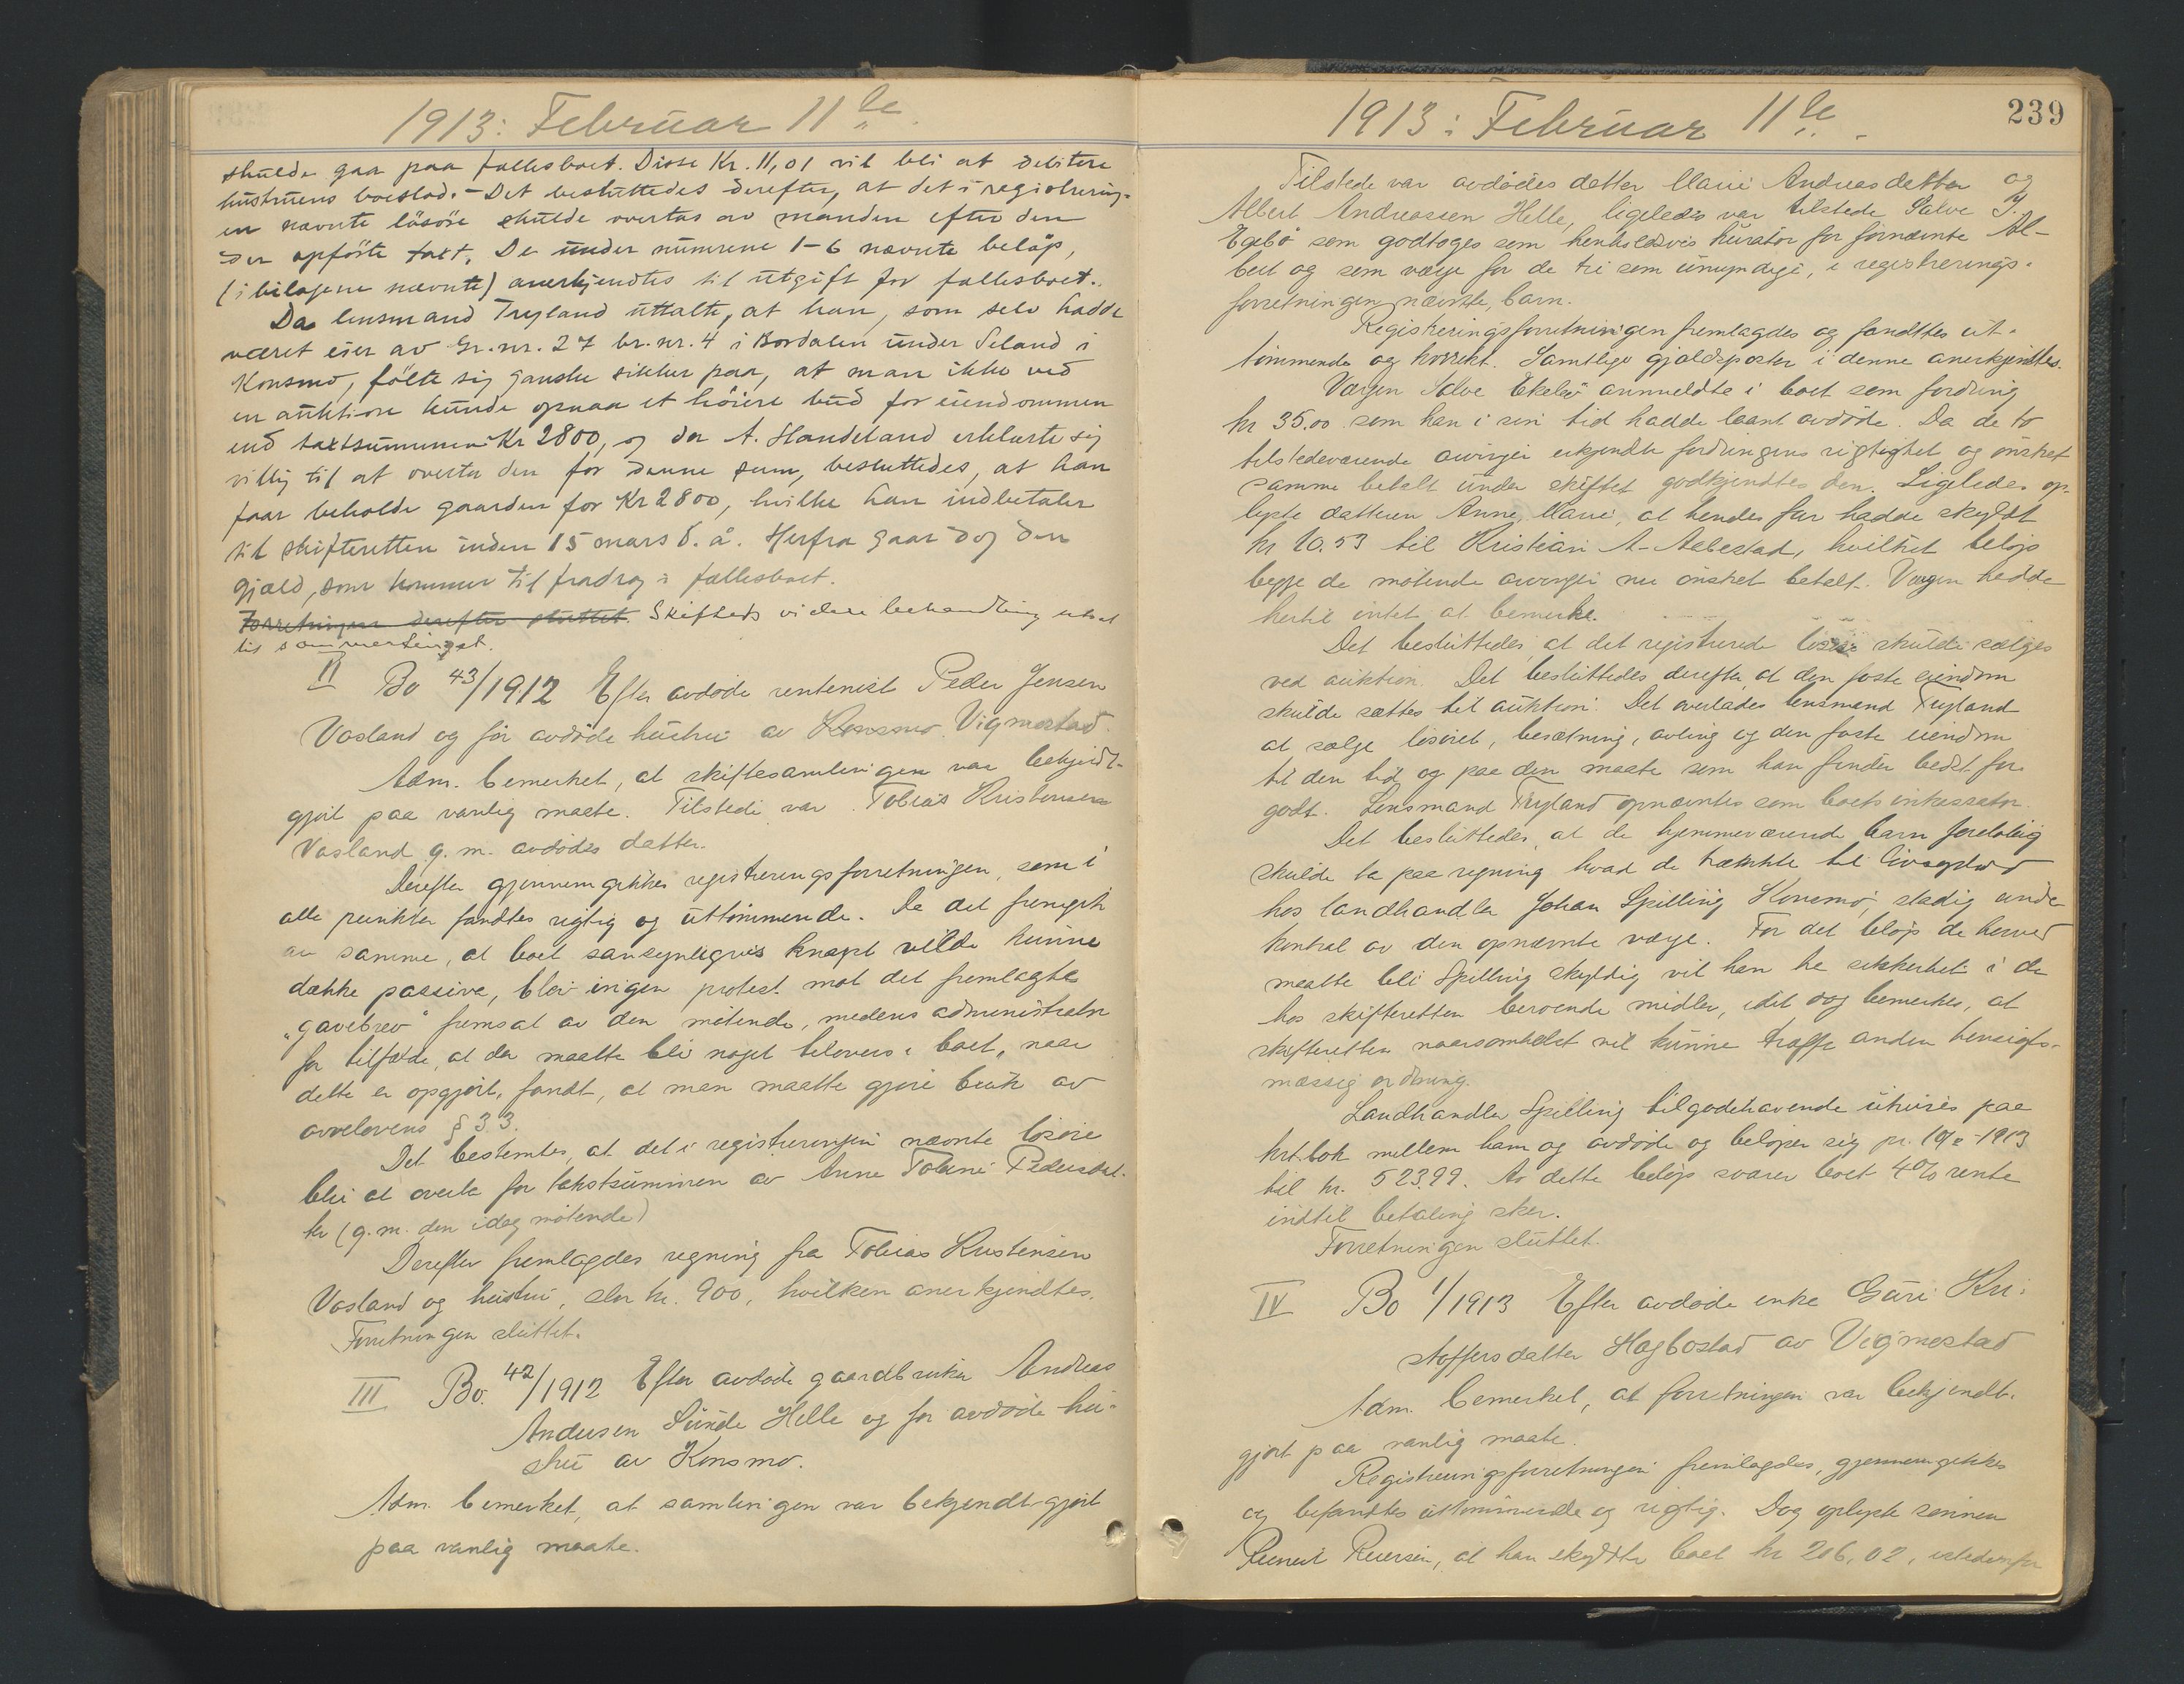 1913: Februar 11te
skulde gaa paa fællesboet. Disse Kr. 11,01 vil bli at debitere
hustruens boeslod. - Det besluttedes derefter, at det i registrering-
en nævnte løsøre skulde overtas av manden efter den
der opførte takst. De under numrene 1-6 nævnte beløp,
(i bilagene nævnte) anerkjendtes til utgift for fællesboet.
Da lensmand Tryland uttalte, at han, som selv hadde
været eier av Gr.nr. 27 br.nr. 4 i Bordalen under Seland i
Konsmo, følte sig ganske sikker paa, at man ikke ved
en auktion kunde opnaa et høiere bud for eiendommen
end takstsummen Kr 2800, og da A. Handeland erklærte sig
villig til at overta den for denne sum, besluttedes, at han
faar beholde gaarden for Kr 2800, hvilke han indbetaler
til skifteretten inden 15 mars d. å. Herfra gaar dog den
gjæld, som kommer til fradrag i fællesboet.
Forretningen derefter sluttet. Skiftets videre behandling utsat
til sommertinget.
II Bo 43/1912 Efter avdøde rentenist Peder Jensen
Vasland og før avdøde hustru av Konsmo. Vigmostad.
Adm. bemerket, at skiftesamlingen var bekjendt-
gjort paa vanlig maate. Tilstede var Tobias Kristensen
Vasland g. m. avdødes datter.
Derefter gjennemgikkes registreringsforretningen, som i
alle punkter fandtes rigtig og uttømmende. Da det fremgik
av samme, at boet sansynligvis knapt vilde kunne
dække passiva, blev ingen protest mot det fremlagte
"gavebrev" fremsat av den møtende, medens administrator
for tilfælde, at der maatte bli noget tilovers i boet, naar
dette er opgjort, fandt, at man maatte gjøre bruk av
arvelovens § 33.
Det bestemtes, at det i registreringen nævnte løsøre
blir at overta for takstsummen av Anne Toline Pedersdat-
ter (g. m. den idag møtende)
Derefter fremlagdes regning fra Tobias Kristensen
Vasland og hustru, stor kr. 900, hvilken anerkjendtes.
Forretningen sluttet.
III Bo. 42/1912 Efter avdøde gaardbruker Andreas
Andersen Sunde Helle og før avdøde hu-
stru av Konsmo.
Adm. bemerket, at samlingen var bekjendtgjort
paa vanlig maate.
1913: Februar 11te.
239
Tilstede var avdødes datter Marie Andreasdatter og
Albert Andreassen Helle, ligeledes var tilstede Salve J.
Egebø som godtoges som henholdsvis kurator for fornævnte Al-
bert og som værje for de tre som umyndige, i registrerings-
forretningen nævnte, barn.
Registreringsforretningen fremlagdes og fandttes ut-
tømmende og korrekt. Samtlige gjældsposter i denne anerkjendtes.
Værgen Salve Ekebø anmeldte i boet som fordring
kr 35.00 som han i sin tid hadde laant avdøde. Da de to
tilstedeværende arvinger erkjendte fordringens rigtighet og ønsket
samme betalt under skiftet godkjendtes den. Ligeledes op-
lyste datteren Anne Marie, at hendes far hadde skyldt
kr 10.53 til Kristian A. Aabestad, hvilket beløp
begge de møtende arvinger nu ønsket betalt. Værgen hadde
hertil intet at bemerke.
Det besluttedes, at det registrerede løsøre skulde sælges
ved auktion. Det besluttedes derefter, at den faste eiendom
skulde sættes til auktion. Det overlades lensmand Tryland
at sælge løsøret, besætning, avling og den faste eiendom
til den tid og paa den maate som han finder bedst for
godt. Lensmand Tryland opnævntes som boets inkassator.
Det besluttedes, at de hjemmeværende barn foreløbig
skulde ta paa regning hvad de trængte til livsophold
hos landhandler Johan Spilling Konsmo, stadig under
kontrol av den opnævnte værge. For det beløp de herved
maatte bli Spilling skyldig vil han ha sikkerhet i de
hos skifteretten beroende midler, idet dog bemerkes, at
skifteretten naarsomhelst vil kunne træffe anden hensigts-
mæssig ordning.
Landhandler Spilling tilgodehavende utvises paa
krt.bok mellem ham og avdøde og beløper sig pr. 10/2-1913
til kr. 523.99. Av dette beløp svarer boet 4% rente
indtil betaling sker.
Forretningen sluttet.
IV Bo 1/1913 Efter avdøde enke Guri Kri-
stoffersdatter Hægbostad av Vigmostad
Adm. bemerket, at forretningen var bekjendt-
gjort paa vanlig maate.
Registreringsforretningen fremlagdes, gjennemgikkes
og befandtes uttømmende og rigtig. Dog oplyste sønnen
Reinert Reiersen, at han skyldte boet kr 206,02, istedenfor